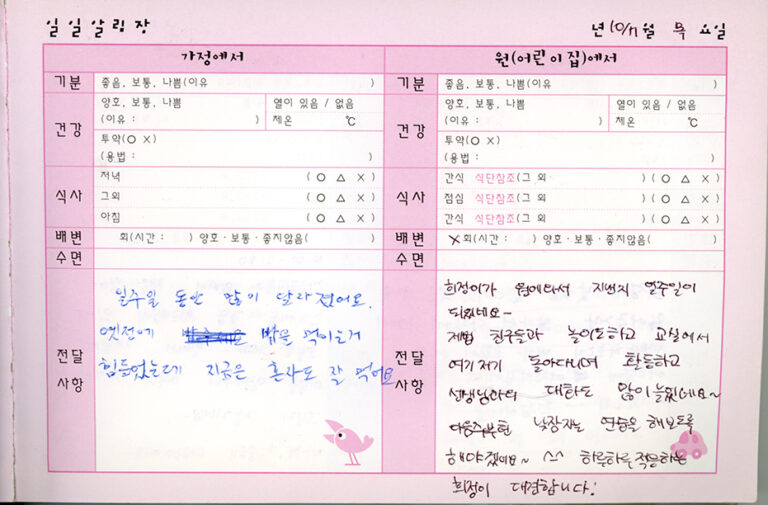 일일알림장
년 10/17월 목 요일
가정에서
기분 좋음, 보통, 나쁨(이유 )
건강 양호, 보통, 나쁨 열이 있음 / 없음
(이유 : ) 체온 ℃
투약(O X)
(용법 : )
식사 저녁 ( O △ X )
그외 ( O △ X )
아침 ( O △ X )
배변 회(시간 : ) 양호 · 보통 · 좋지않음( )
수면
전달사항
일주일 동안 많이 달라졌어요.
옛전에 밥을 먹이는거
힘들었는데 지금은 혼자도 잘 먹어요
원(어린이집)에서
기분 좋음, 보통, 나쁨(이유 )
건강 양호, 보통, 나쁨 열이 있음 / 없음
(이유 : ) 체온 ℃
투약(O X)
(용법 : )
식사 간식 식단참조(그 외 ) ( O △ X )
점심 식단참조(그 외 ) ( O △ X )
간식 식단참조(그 외 ) ( O △ X )
배변 X회(시간 : ) 양호 · 보통 · 좋지않음( )
수면
전달사항
희정이가 원에와서 지낸지 일주일이
되었네요~
제법 친구들과 놀이도하고 교실에서
여기저기 돌아다니며 활동하고
선생님과의 대화도 많이늘었네요~
다음주부턴 낮잠자는 연습을 해보도록
해야겠어요~ ^^ 하루하루 적응하는
희정이 대견합니다!